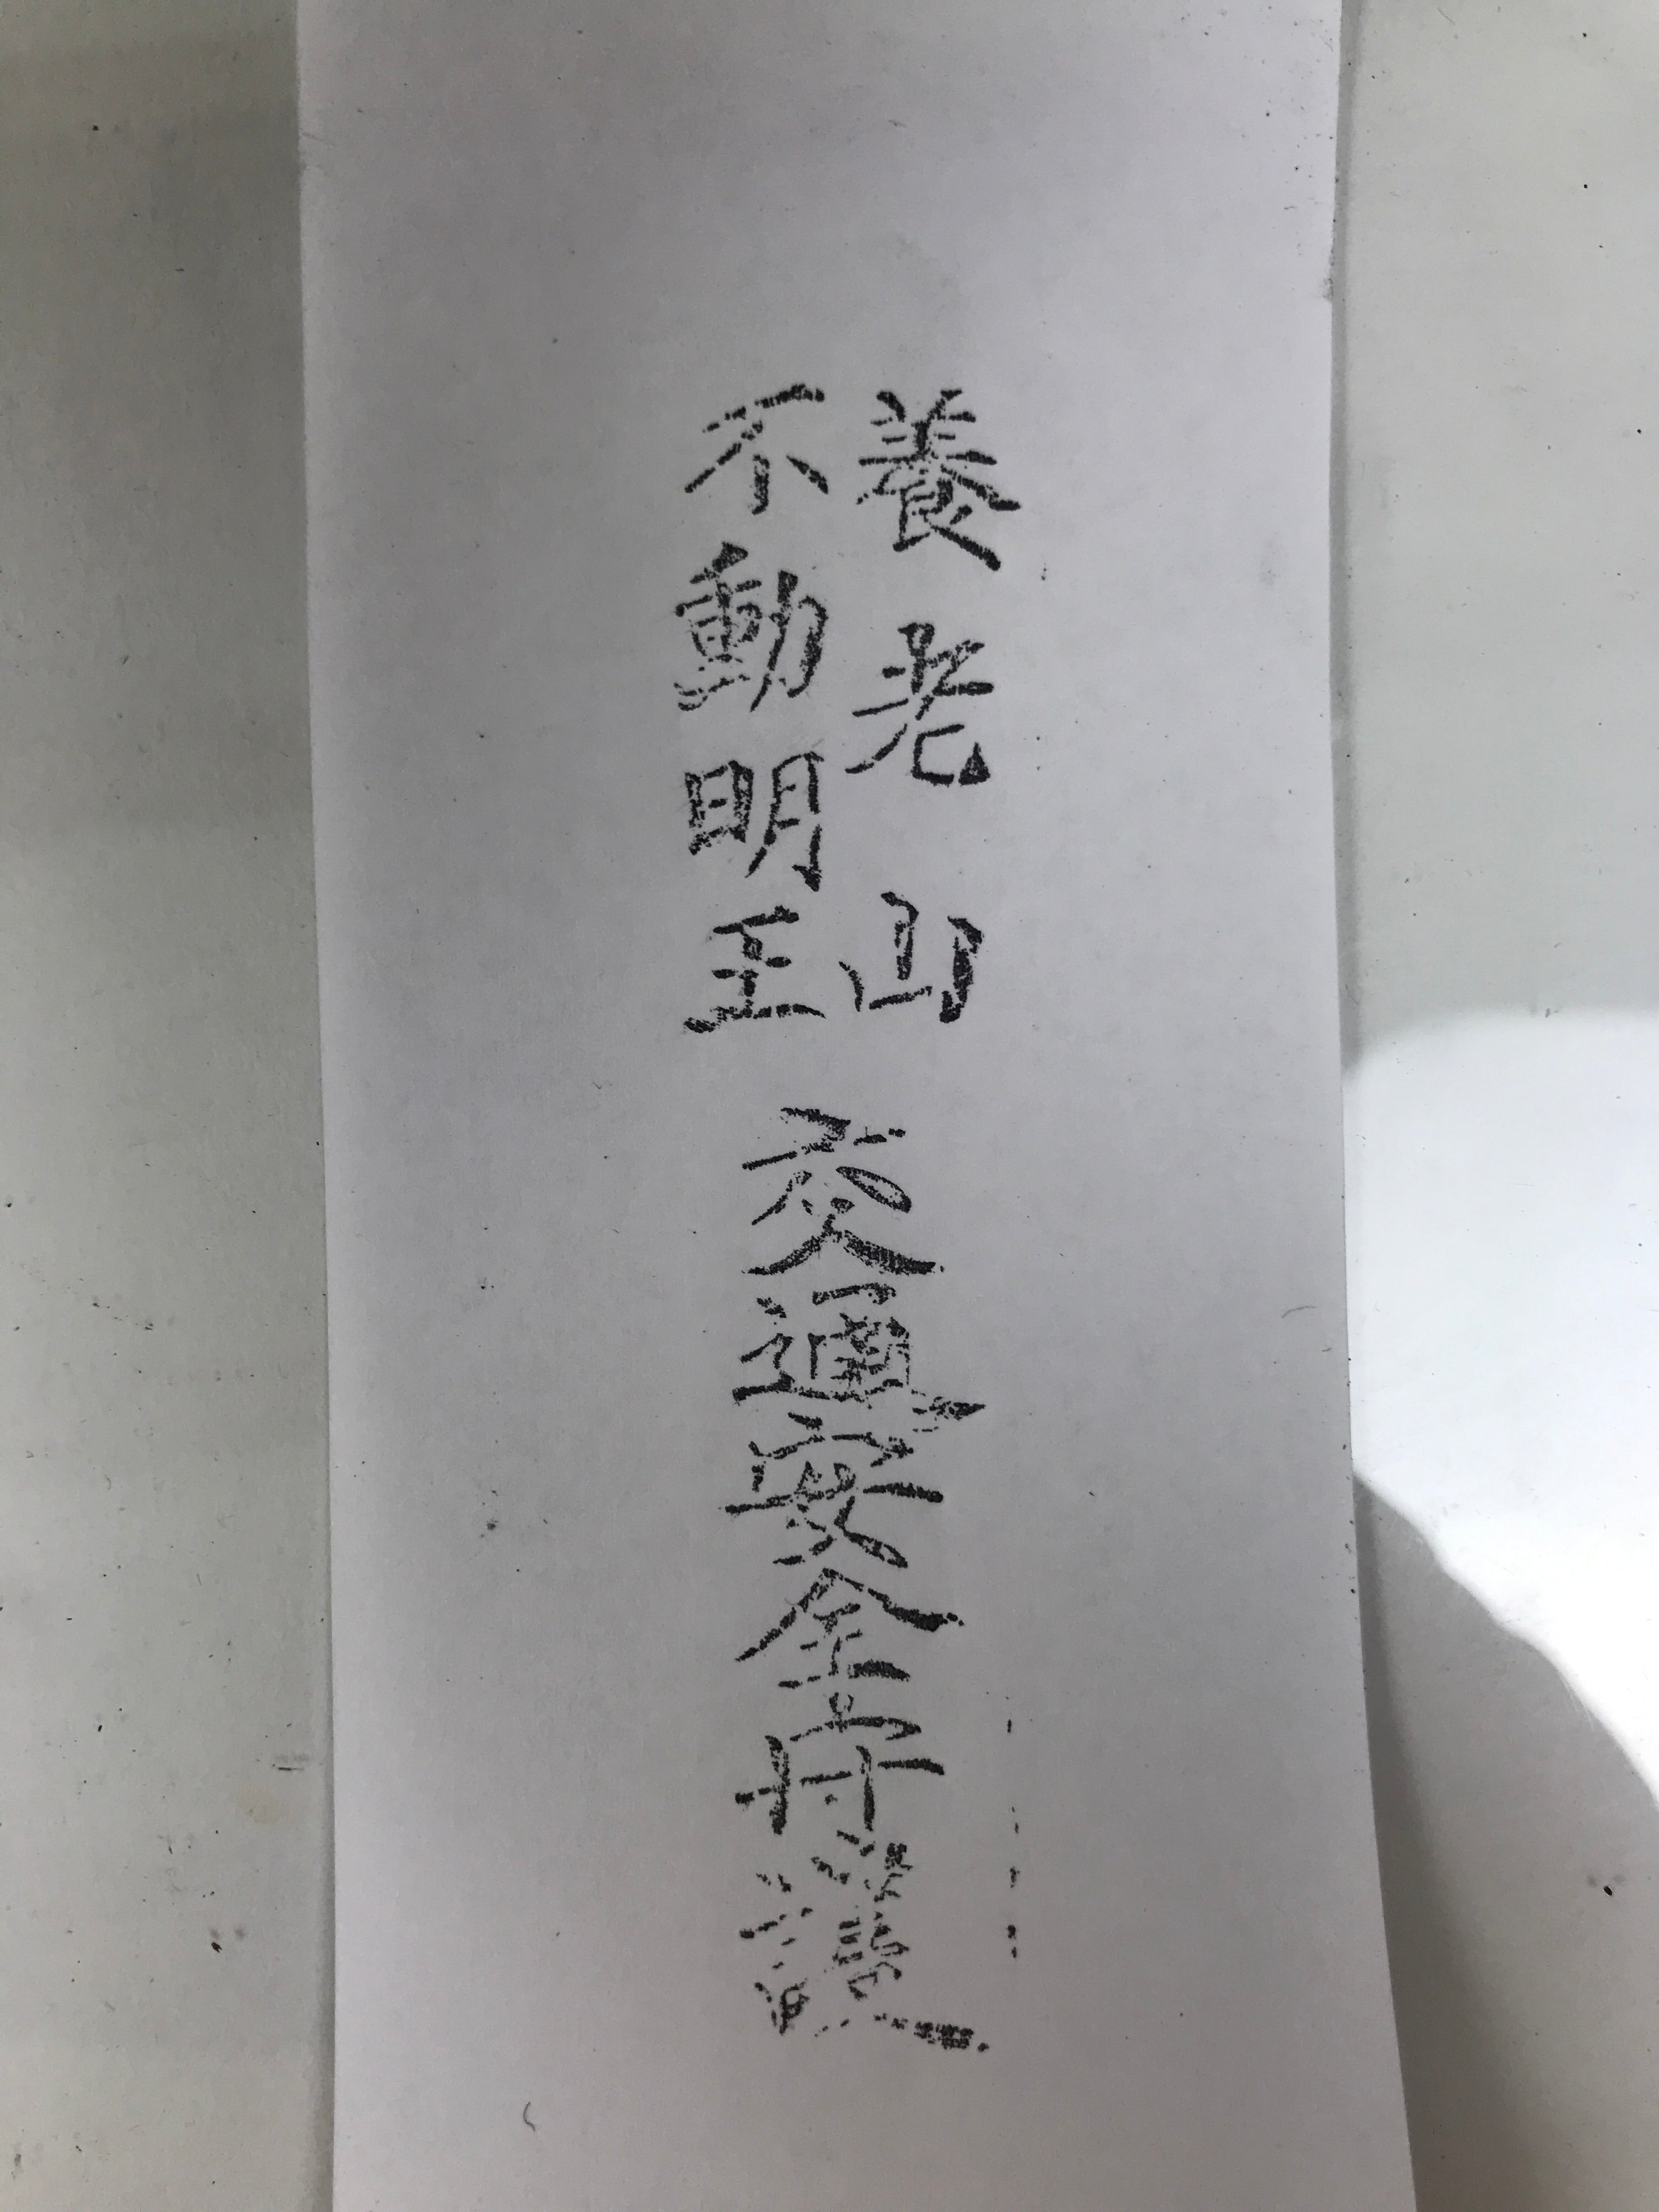 養老山
不動明王
交通安全守護